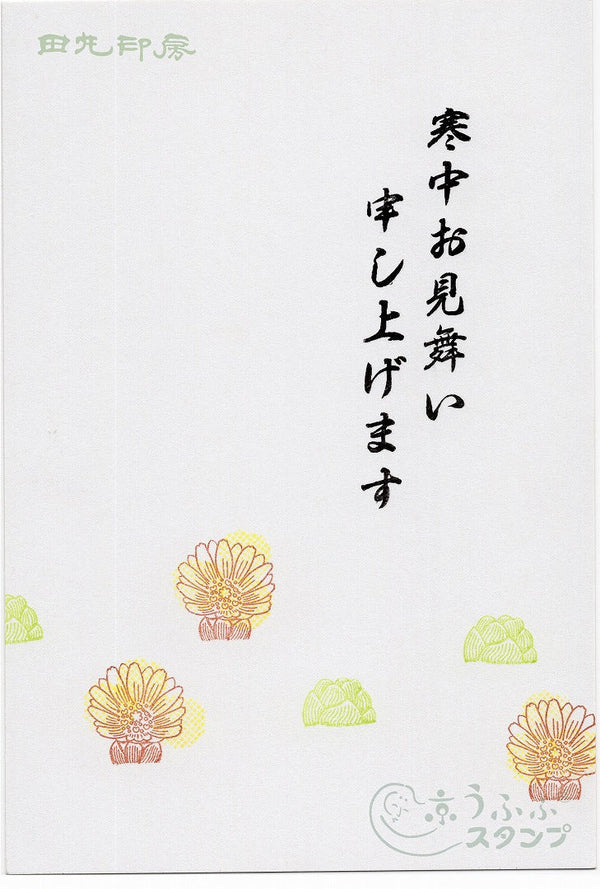 田丸印房
寒中お見舞い
申し上げます
京うふふ
スタンプ